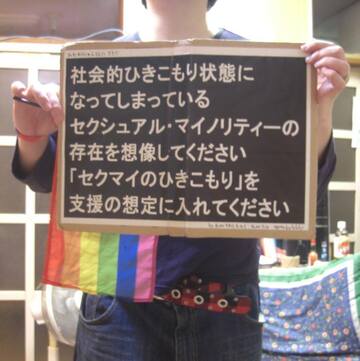 社会的ひきこもり状態に
なってしまっている
セクシュアル・マイノリティーの
存在を想像してください
「セクマイのひきこもり」を
支援の想定に入れてください